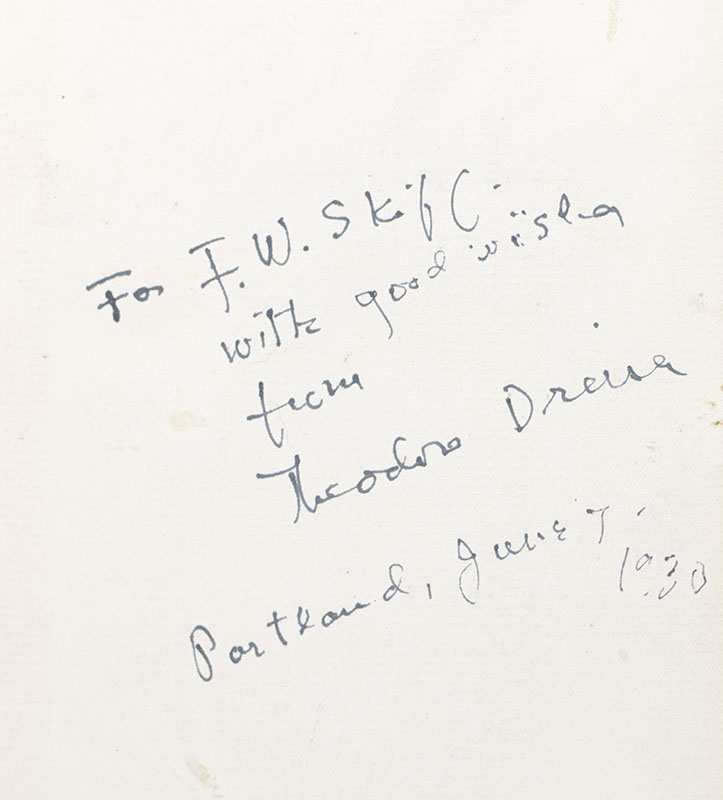 For F. W. Skiff.
with good wishes
from
Theodore Dreiser
Portland, June 7 -
1930